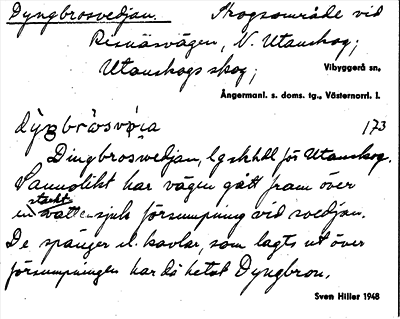 Dyngbrosvedjan. Skogsområde vid
Risnäsvägen, N. Utanskog;
Utanskogs skog; Vibyggerå sn,
Ångermanl. s. doms. tg., Västernorrl. l.
173
Dingbrosvedjan, lgskhdl för Utanskog.
Sannolikt har vägen gått fram över
starkt
en vattensjuk försumpning vid svedjan.
De spänger el. kavlar, som lagts ut över
försumpningen har då hetat Dyngbron.
Sven Hiller 1948